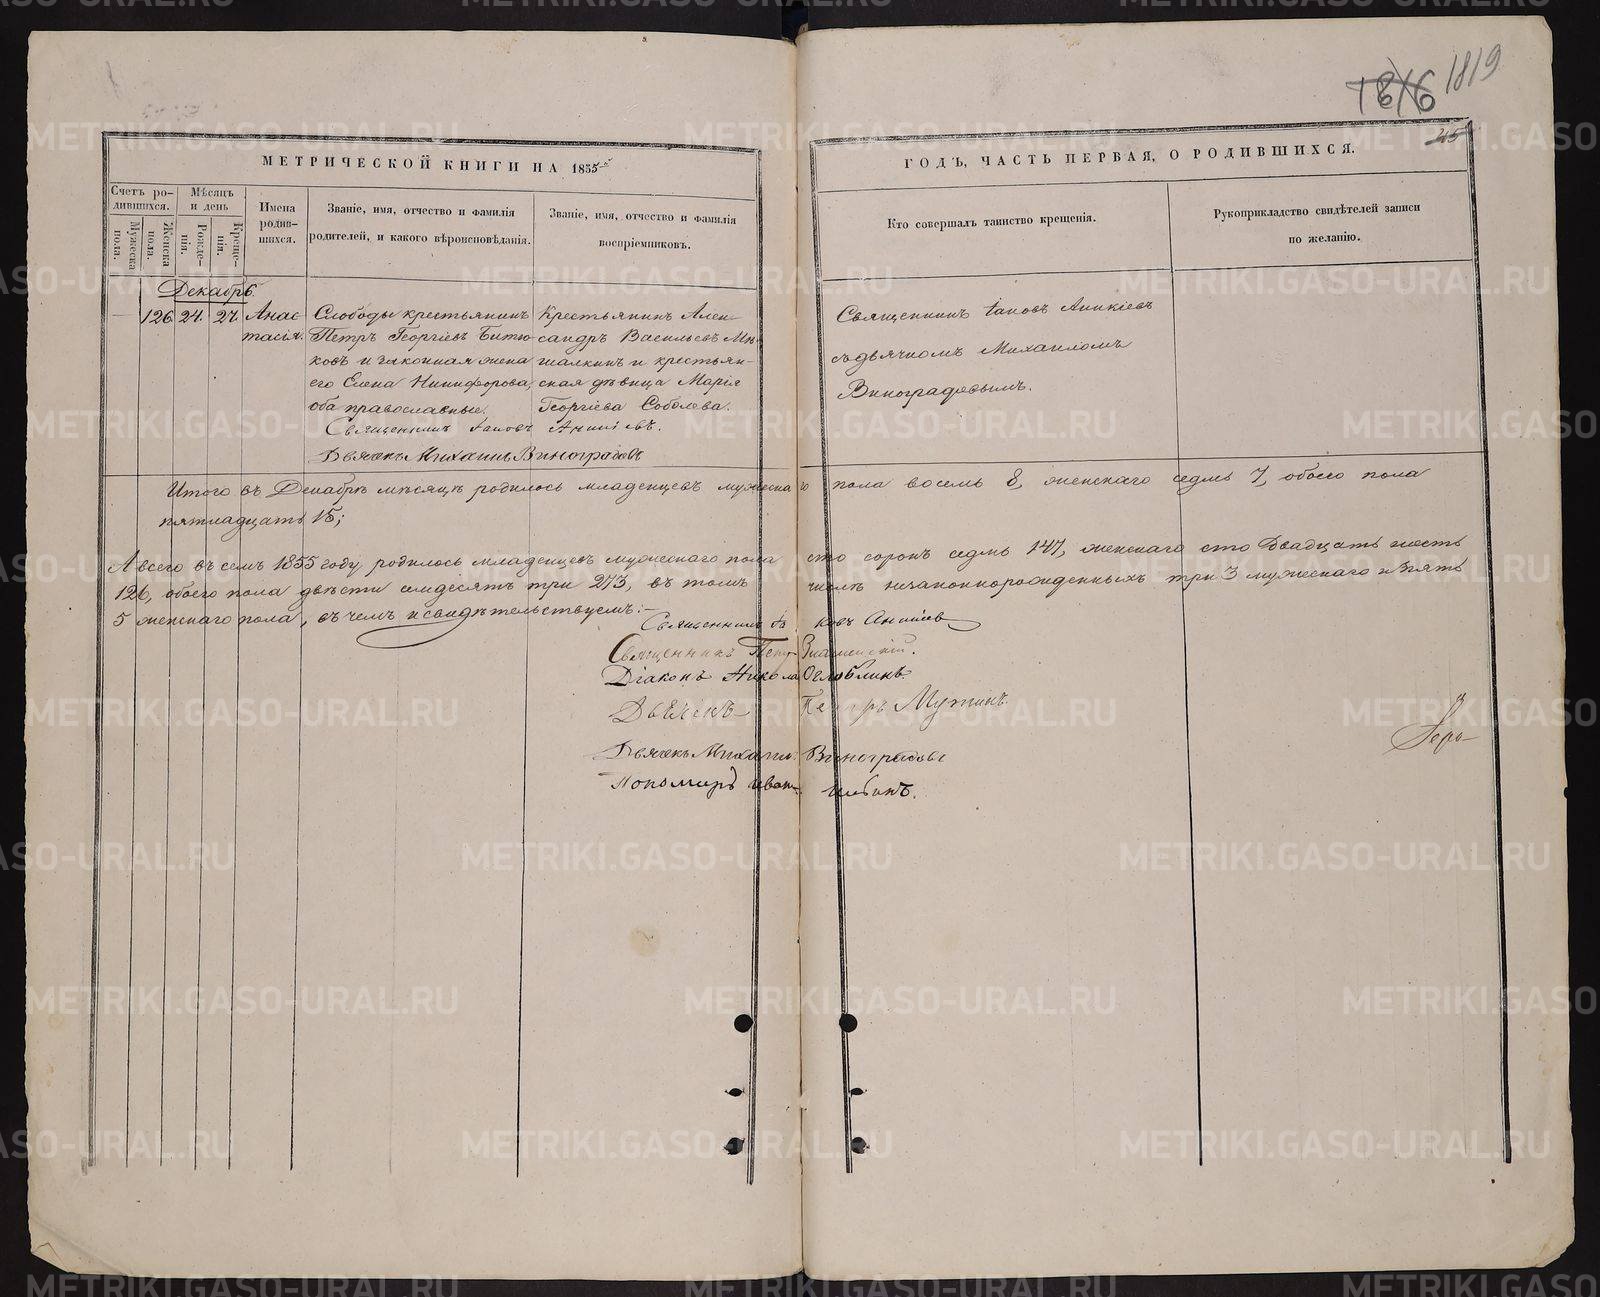 1816 1819
215
МЕТРИЧЕСКОЙ КНИГИ НА 1855
ГОДЪ, ЧАСТЬ ПЕРВАЯ, О РОДИВШИХСЯ.
Счетъ ро-
дившихся.
Мужеска
пола.
Женска
пола.
Мѣсяцъ
и день
Рожде-
нія.
Креще-
нія.
Имена
родив-
шихся.
Званіе, имя, отчество и фамилія
родителей, и какого вѣроисповѣданія.
Званіе, имя, отчество и фамилія
воспріемниковъ.
Кто совершалъ таинство крещенія.
Рукоприкладство свидѣтелей записи
по желанію.
Декабрь.
126 24. 27. Анас-
тасія.
Слободы крестьянинъ
Петръ Георгіевъ Битю-
ковъ и законная жена
его Елена Никифорова,
оба православные.
Крестьянинъ Алек-
сандръ Васильевъ
и крестьян-
ская дѣвица Марія
Георгіева Соболева.
Священникъ Іаковъ Аникіевъ
съ дьячкомъ Михаиломъ
Виноградовымъ.
Священникъ Іаковъ Аникіевъ.
Дьячекъ Михаилъ Виноградовъ
Итого въ Декабрѣ мѣсяцѣ родилось младенцевъ мужеска го пола восемь 8, женскаго седмь 7, обоего пола
пятнадцать 15;
А всего въ семъ 1855 году, родилось младенцевъ мужескаго пола сто сорокъ седмь 147, женскаго сто двадцать шесть
126, обоего пола двѣсти семдесятъ три 273, въ томъ числѣ незаконнорожденныхъ три 3 мужескаго и пять
5 женскаго пола, въ чемъ и свидѣтельствуемъ:—
Священникъ Іаковъ Аникіевъ
Священникъ Петръ Знаменскій.
Діаконъ Николай Оглоблинъ
Дьячекъ Петръ Мутинъ.
Дьячекъ Михаилъ Виноградовъ
Пономарь Иванъ Ильинъ.
METRIKI.GASO-URAL.RU